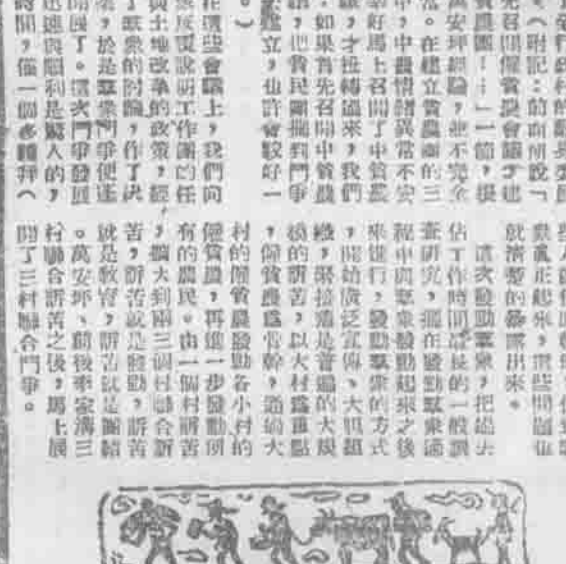 (附記:前面所說「
先召開僱貧農會議才建
貧農團……」一節,據
萬安坪經驗,並不完全
當。在建立貧農團的三
中,中農情緒異常不安
幸好馬上召開了中貧農
議,才扭轉過來,我們
。如果首先召開中貧農
,把貧民團擱到鬥爭
建立,也許會較好一
。)
在這些會議上,我們向
衆反覆說明工作團的任
與土地改革的政策,經
了羣衆的討論,作了決
,於是羣衆鬥爭便迅
開展了。這次鬥爭發展
迅速與順利是驚人的,
時間,僅一個多禮拜(
衆真正起來,這些問題也
就清楚的暴露出來。
這次發動羣衆,把過去
佔工作時間最長的一般調
查研究,擺在發動羣衆過
程中與羣衆發動起來之後
來進行,發動羣衆的方式
,開始廣泛宣傳、大胆組
織,緊接着是普遍的大規
模的訴苦,以大村爲重點
,僱貧農爲骨幹,通過大
村的僱貧農發動各小村的
僱貧農,再進一步發動所
有的農民。由一個村訴苦
,擴大到兩三個村聯合訴
苦,訴苦就是發動,訴苦
就是敎育,訴苦就是團結
。萬安坪、前後李家溝三
村聯合訴苦之後,馬上展
開了三村聯合鬥爭。